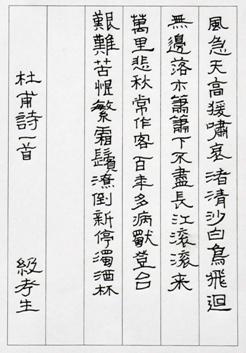 風急天高猨嘯哀渚清沙白鳥飛迴
無邊落木簫簫下不盡長江滾滾来
萬里悲秋常作客百年多病獨登台
艱難苦恨繁霜鬢潦倒新停濁酒杯
杜甫詩一首 級考生